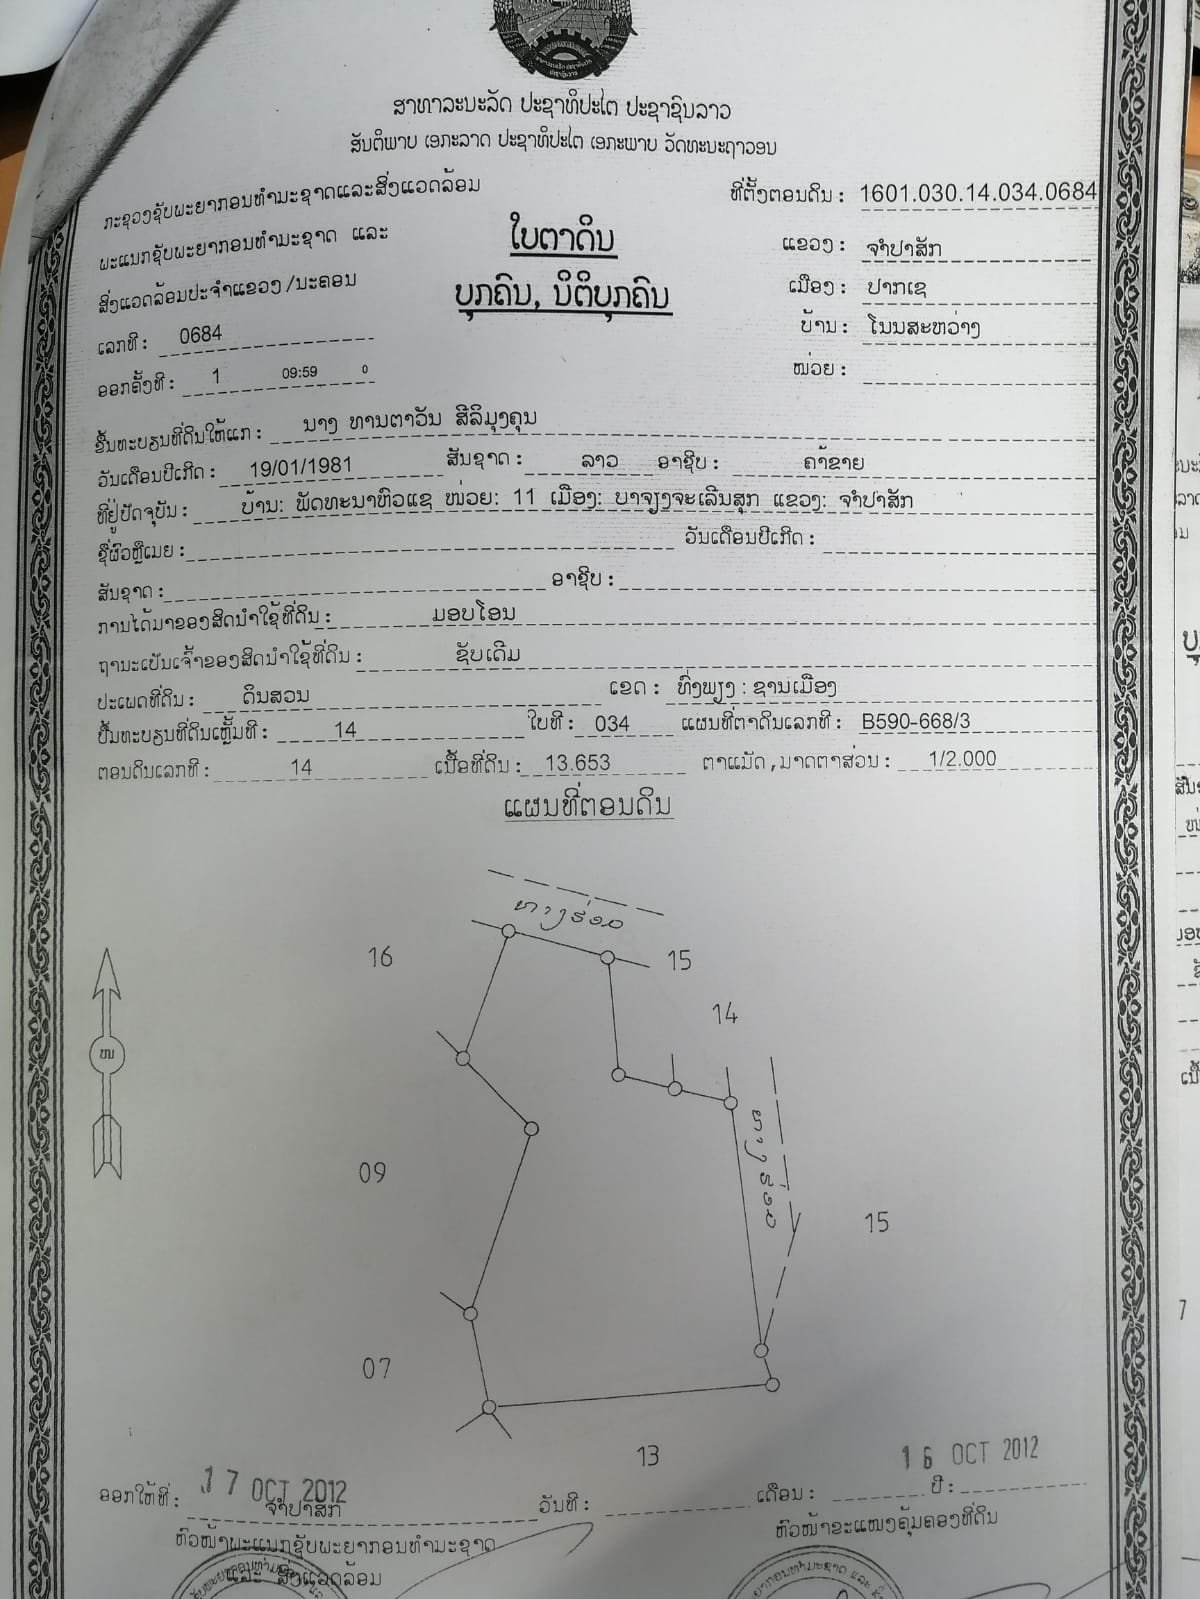 ສາທາລະນະລັດ ປະຊາທິປະໄຕ ປະຊາຊົນລາວ
ສັນຕິພາບ ເອກະລາດ ປະຊາທິປະໄຕ ເອກະພາບ ວັດທະນະຖາວອນ
ກະຊວງຊັບພະຍາກອນທຳມະຊາດແລະສິ່ງແວດລ້ອມ
ພະແນກຊັບພະຍາກອນທຳມະຊາດ ແລະ
ສິ່ງແວດລ້ອມປະຈຳແຂວງ/ນະຄອນ
ເລກທີ: 0684
ອອກຄັ້ງທີ: 1 09:59 0
ໃບຕາດິນ
ບຸກຄົນ, ນິຕິບຸກຄົນ
ທີ່ຕັ້ງຕອນດິນ: 1601.030.14.034.0684
ແຂວງ: ຈຳປາສັກ
ເມືອງ: ປາກເຊ
ບ້ານ: ໂນນສະຫວ່າງ
ໜ່ວຍ:
ຂຶ້ນທະບຽນທີ່ດິນໃຫ້ແກ່: ນາງ ທານຕາວັນ ສີລິມຸງຄຸນ
ວັນເດືອນປີເກີດ: 19/01/1981 ສັນຊາດ: ລາວ ອາຊີບ: ຄ້າຂາຍ
ທີ່ຢູ່ປັດຈຸບັນ: ບ້ານ: ພັດທະນາຫົວແຊ ໜ່ວຍ: 11 ເມືອງ: ບາຈຽງຈະເລີນສຸກ ແຂວງ: ຈຳປາສັກ
ຊື່ຜົວຫຼືເມຍ: ວັນເດືອນປີເກີດ:
ສັນຊາດ: ອາຊີບ:
ການໄດ້ມາຂອງສິດນຳໃຊ້ທີ່ດິນ: ມອບໂອນ
ຖານະເປັນເຈົ້າຂອງສິດນຳໃຊ້ທີ່ດິນ: ຊັບເດີມ
ປະເພດທີ່ດິນ: ດິນສວນ ເຂດ: ທົ່ງພຽງ : ຊານເມືອງ
ປຶ້ມທະບຽນທີ່ດິນເຫຼັ້ມທີ: 14 ໃບທີ: 034 ແຜນທີ່ຕາດິນເລກທີ: B590-668/3
ຕອນດິນເລກທີ: 14 ເນື້ອທີ່ດິນ: 13.653 ຕາແມັດ, ມາດຕາສ່ວນ: 1/2.000
ແຜນທີ່ຕອນດິນ
ທາງຮ່ອມ
16
15
14
ໜ
ທາງຮ່ອມ
09
15
07
13
16 OCT 2012
17 OCT 2012
ອອກໃຫ້ທີ່: ຈຳປາສັກ ວັນທີ: ເດືອນ: ປີ:
ຫົວໜ້າພະແນກຊັບພະຍາກອນທຳມະຊາດ
ແລະ ສິ່ງແວດລ້ອມ
ຫົວໜ້າຂະແໜງຄຸ້ມຄອງທີ່ດິນ